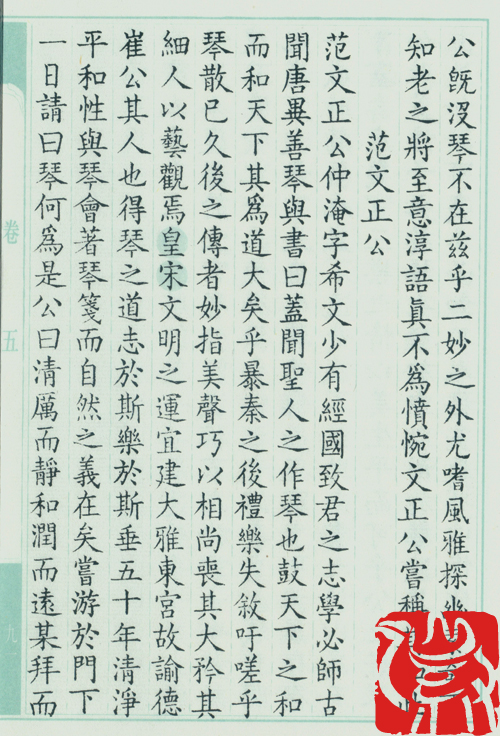 公既沒琴不在茲乎二妙之外尤嗜風雅探幽
知老之將至意淳語真不為憤惋文正公嘗稱
范文正公
范文正公仲淹字希文少有經國致君之志學必師古
聞唐異善琴與書曰蓋聞聖人之作琴也鼓天下之和
而和天下其為道大矣乎暴秦之後禮樂失敘吁嗟乎
琴散已久後之傳者妙指美聲巧以相尚喪其大矜其
細人以藝觀焉皇宋文明之運宜建大雅東宮故諭德
崔公其人也得琴之道志於斯樂於斯垂五十年清淨
平和性與琴會著琴箋而自然之義在矣嘗游於門下
一日請曰琴何為是公曰清厲而靜和潤而遠某拜而
卷
五
九